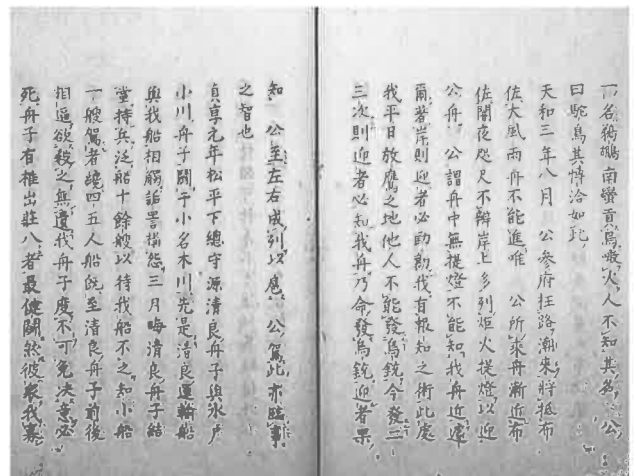 一名鵞鶘南蠻貢鳥噉火人不知其名公
曰駝鳥其博洽如此
天和三年八月　公參府枉路潮來將抵布
佐大風雨舟不能進唯　公所乘舟漸近布
佐闇夜咫尺不辨岸上多列炬火提燈以迎
公舟　公謂舟中無提燈不能知我舟近處
爾著岸則迎者必動勸我有報知之術此處
我平日放鷹之地他人不能發鳥銃今發二
三次則迎者必知我舟乃命發鳥銃迎者果
知　公至左右成列以應　公駕此亦臨事
之智也
貞享元年松平下總守源清良舟子與水戶
小川舟子鬪于小名木川先是清良運輸船
與我船相觸詬詈搆怨三月晦清良舟子結
黨持兵泛船十餘艘以待我船不之知小船
一艘駕者纔四五人船既至清良舟子前後
相逼欲殺之無遺我舟子度不可免決意必
死舟子有推出莊八者最健鬪然彼衆我寡